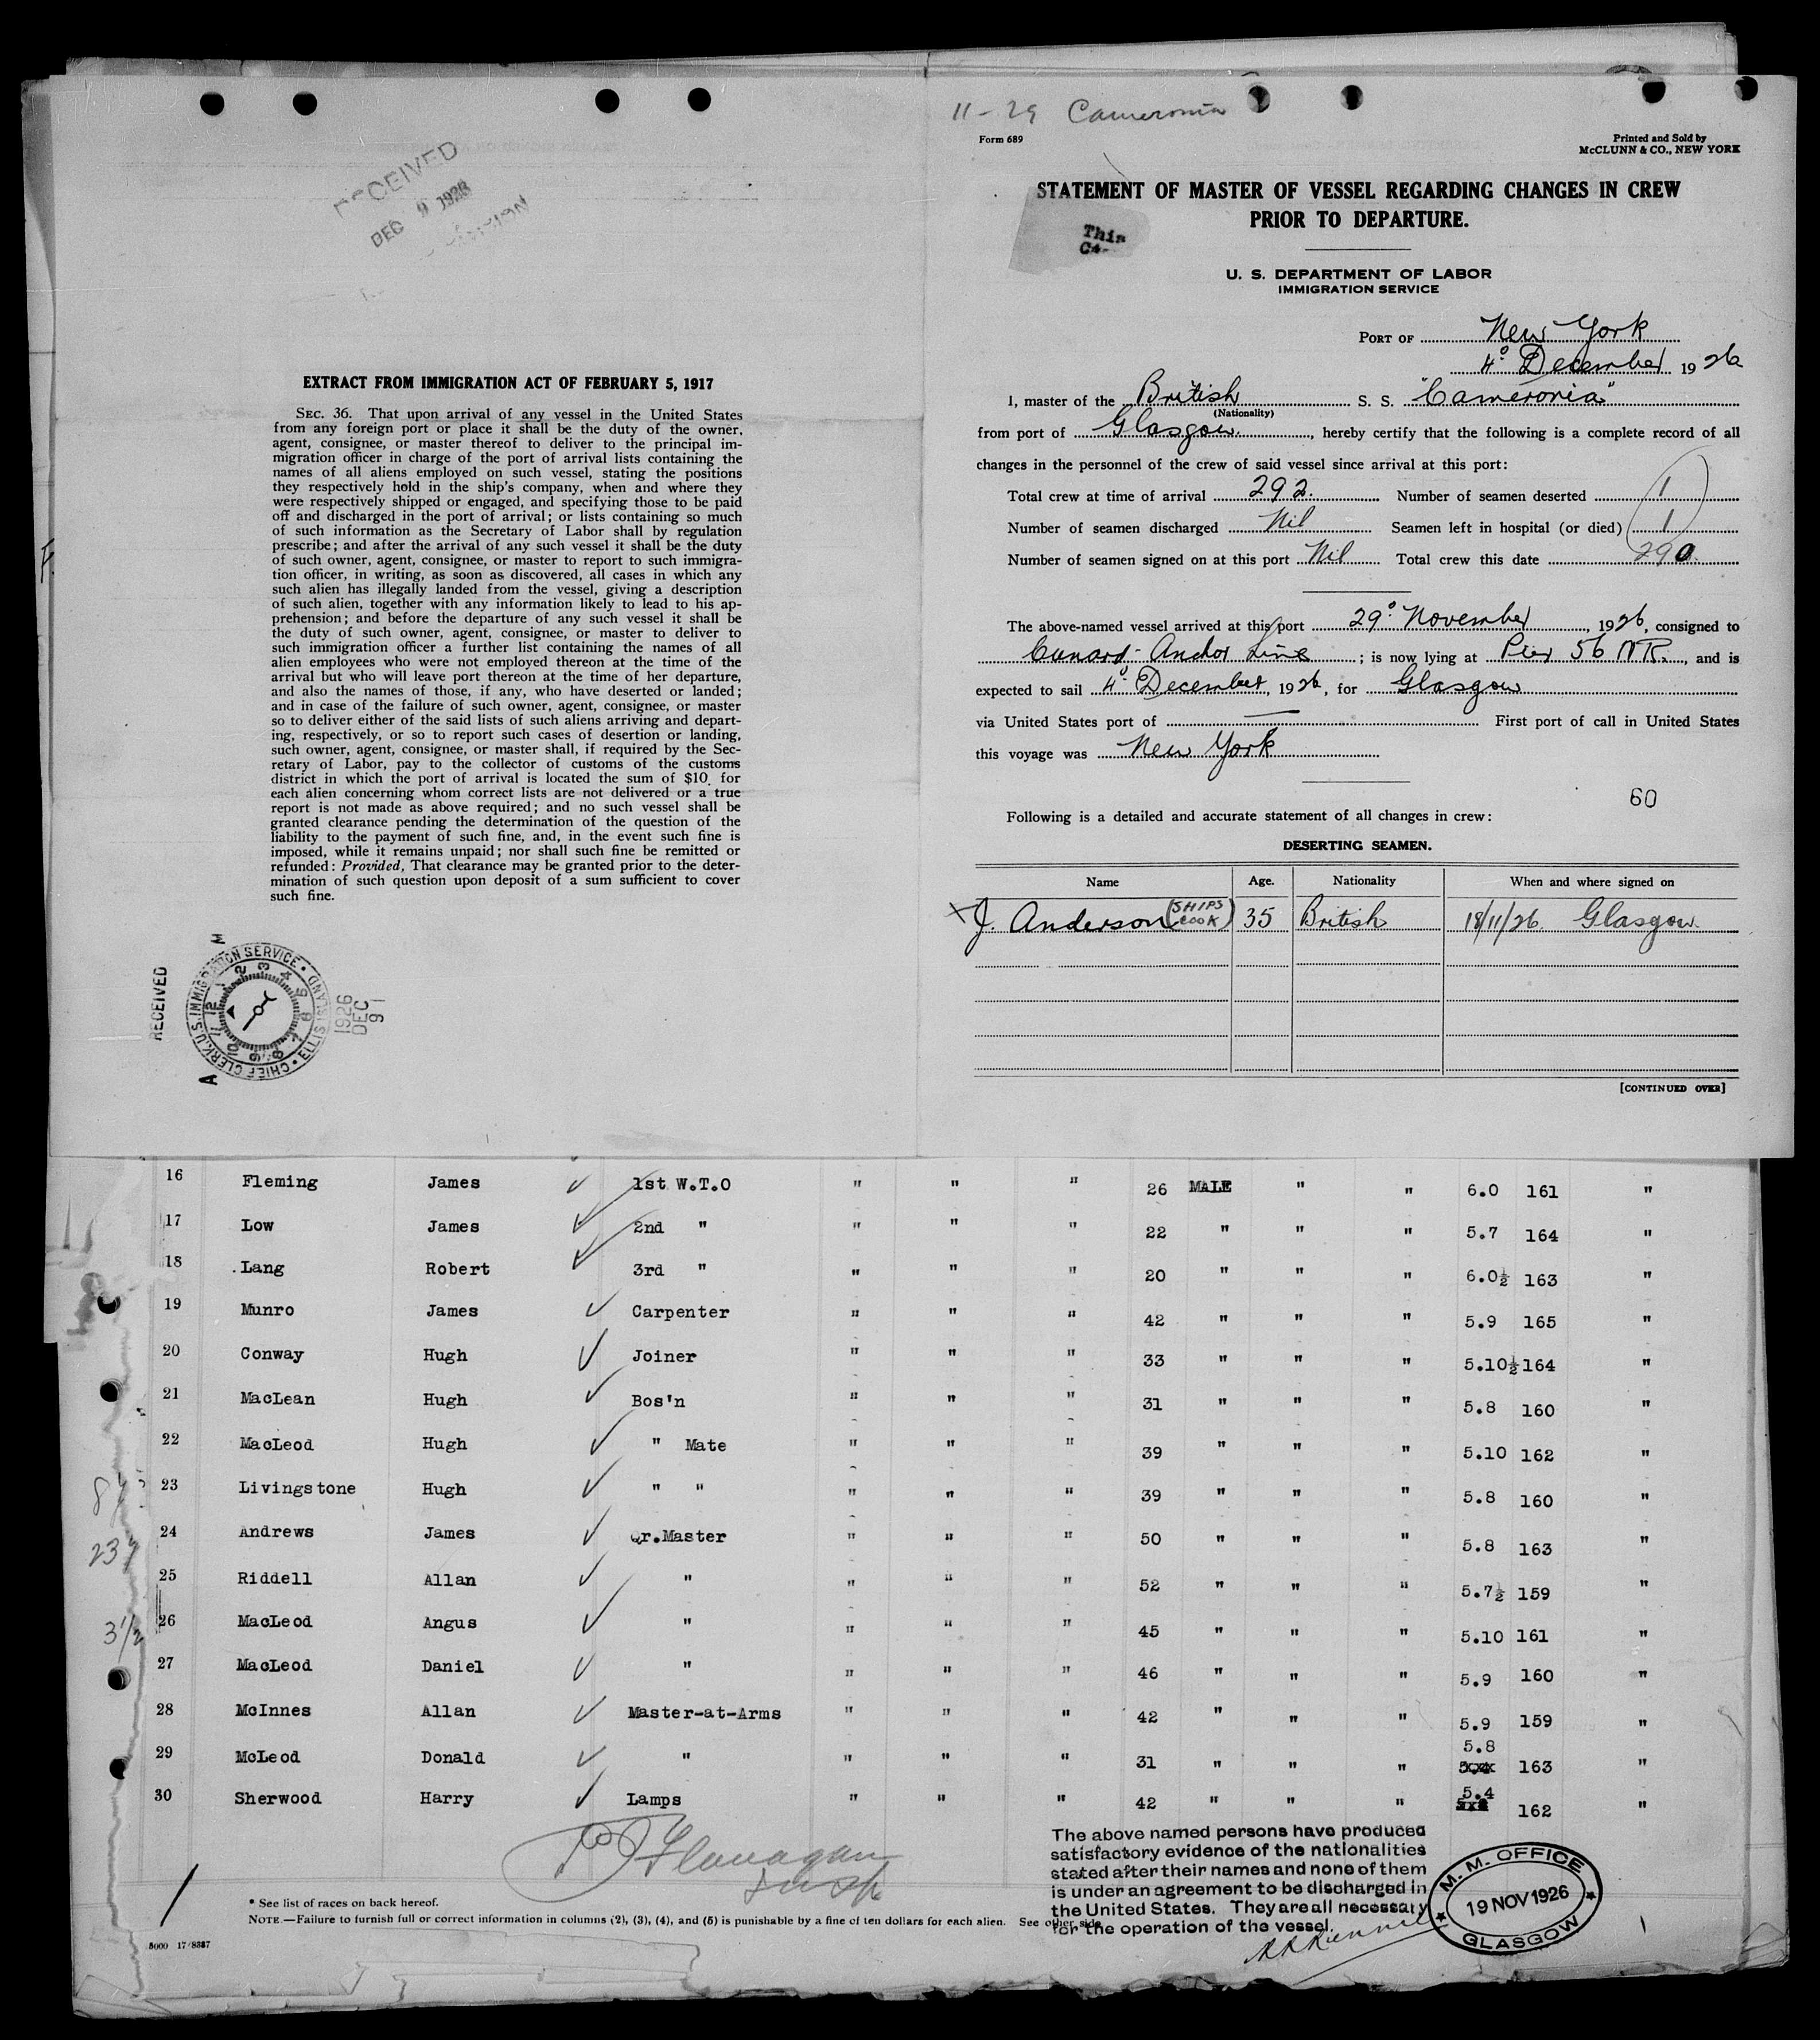 RECEIVED
DEC 9 1926
EXTRACT FROM IMMIGRATION ACT OF FEBRUARY 5, 1917
SEC. 36. That upon arrival of any vessel in the United States
from any foreign port or place it shall be the duty of the owner,
agent, consignee, or master thereof to deliver to the principal im-
migration officer in charge of the port of arrival lists containing the
names of all aliens employed on such vessel, stating the positions
they respectively hold in the ship's company, when and where they
were respectively shipped or engaged, and specifying those to be paid
off and discharged in the port of arrival; or lists containing so much
of such information as the Secretary of Labor shall by regulation
prescribe; and after the arrival of any such vessel it shall be the duty
of such owner, agent, consignee, or master to report to such immigra-
tion officer, in writing, as soon as discovered, all cases in which any
such alien has illegally landed from the vessel, giving a description
of such alien, together with any information likely to lead to his ap-
prehension; and before the departure of any such vessel it shall be
the duty of such owner, agent, consignee, or master to deliver to
such immigration officer a further list containing the names of all
alien employees who were not employed thereon at the time of the
arrival but who will leave port thereon at the time of her departure,
and also the names of those, if any, who have deserted or landed;
and in case of the failure of such owner, agent, consignee, or master
so to deliver either of the said lists of such aliens arriving and depart-
ing, respectively, or so to report such cases of desertion or landing,
such owner, agent, consignee, or master shall, if required by the Sec-
retary of Labor, pay to the collector of customs of the customs
district in which the port of arrival is located the sum of $10 for
each alien concerning whom correct lists are not delivered or a true
report is not made as above required; and no such vessel shall be
granted clearance pending the determination of the question of the
liability to the payment of such fine, and, in the event such fine is
imposed, while it remains unpaid; nor shall such fine be remitted or
refunded: Provided, That clearance may be granted prior to the deter-
mination of such question upon deposit of a sum sufficient to cover
such fine.
RECEIVED
CHIEF CLERK, U.S. IMMIGRATION SERVICE • ELLIS ISLAND •
A M
1926
DEC
9
11-29 Cameronia
Form 689
Printed and Sold by
McCLUNN & CO., NEW YORK
STATEMENT OF MASTER OF VESSEL REGARDING CHANGES IN CREW
PRIOR TO DEPARTURE.
This
U. S. DEPARTMENT OF LABOR
IMMIGRATION SERVICE
PORT OF New York
4º December 1926
I, master of the British S. S. "Cameronia"
(Nationality)
from port of Glasgow, hereby certify that the following is a complete record of all
changes in the personnel of the crew of said vessel since arrival at this port:
Total crew at time of arrival 292. Number of seamen deserted 1
Number of seamen discharged Nil Seamen left in hospital (or died) 1
Number of seamen signed on at this port Nil Total crew this date 290.
The above-named vessel arrived at this port 29º November, 1926, consigned to
Cunard-Anchor Line; is now lying at Pier 56 N.R., and is
expected to sail 4º December, 1926, for Glasgow
via United States port of — First port of call in United States
this voyage was New York
60
Following is a detailed and accurate statement of all changes in crew:
DESERTING SEAMEN.
Name Age. Nationality When and where signed on
X J. Anderson (SHIPS COOK) 35 British 18/11/26. Glasgow.
[CONTINUED OVER]
16 Fleming James ✓ 1st W.T.O " " " 26 MALE " " 6.0 161 "
17 Low James ✓ 2nd " " " " 22 " " " 5.7 164 "
18 Lang Robert ✓ 3rd " " " " 20 " " " 6.0½ 163 "
19 Munro James ✓ Carpenter " " " 42 " " " 5.9 165 "
20 Conway Hugh ✓ Joiner " " " 33 " " " 5.10½ 164 "
21 MacLean Hugh ✓ Bos'n " " " 31 " " " 5.8 160 "
22 MacLeod Hugh ✓ " Mate " " " 39 " " " 5.10 162 "
23 Livingstone Hugh ✓ " " " " " 39 " " " 5.8 160 "
24 Andrews James ✓ Qr.Master " " " 50 " " " 5.8 163 "
25 Riddell Allan ✓ " " " " 52 " " " 5.7½ 159 "
26 MacLeod Angus ✓ " " " " 45 " " " 5.10 161 "
27 MacLeod Daniel ✓ " " " " 46 " " " 5.9 160 "
28 McInnes Allan ✓ Master-at-Arms " " " 42 " " " 5.9 159 "
29 McLeod Donald ✓ " " " " 31 " " " 5.8 163 "
30 Sherwood Harry ✓ Lamps " " " 42 " " " 5.4 162 "
23
3 1/2
Flanagan
Insp
The above named persons have produced
satisfactory evidence of the nationalities
stated after their names and none of them
is under an agreement to be discharged in
the United States. They are all necessary
for the operation of the vessel.
M. M. OFFICE
19 NOV 1926
GLASGOW
* See list of races on back hereof.
NOTE.—Failure to furnish full or correct information in columns (2), (3), (4), and (5) is punishable by a fine of ten dollars for each alien. See other side.